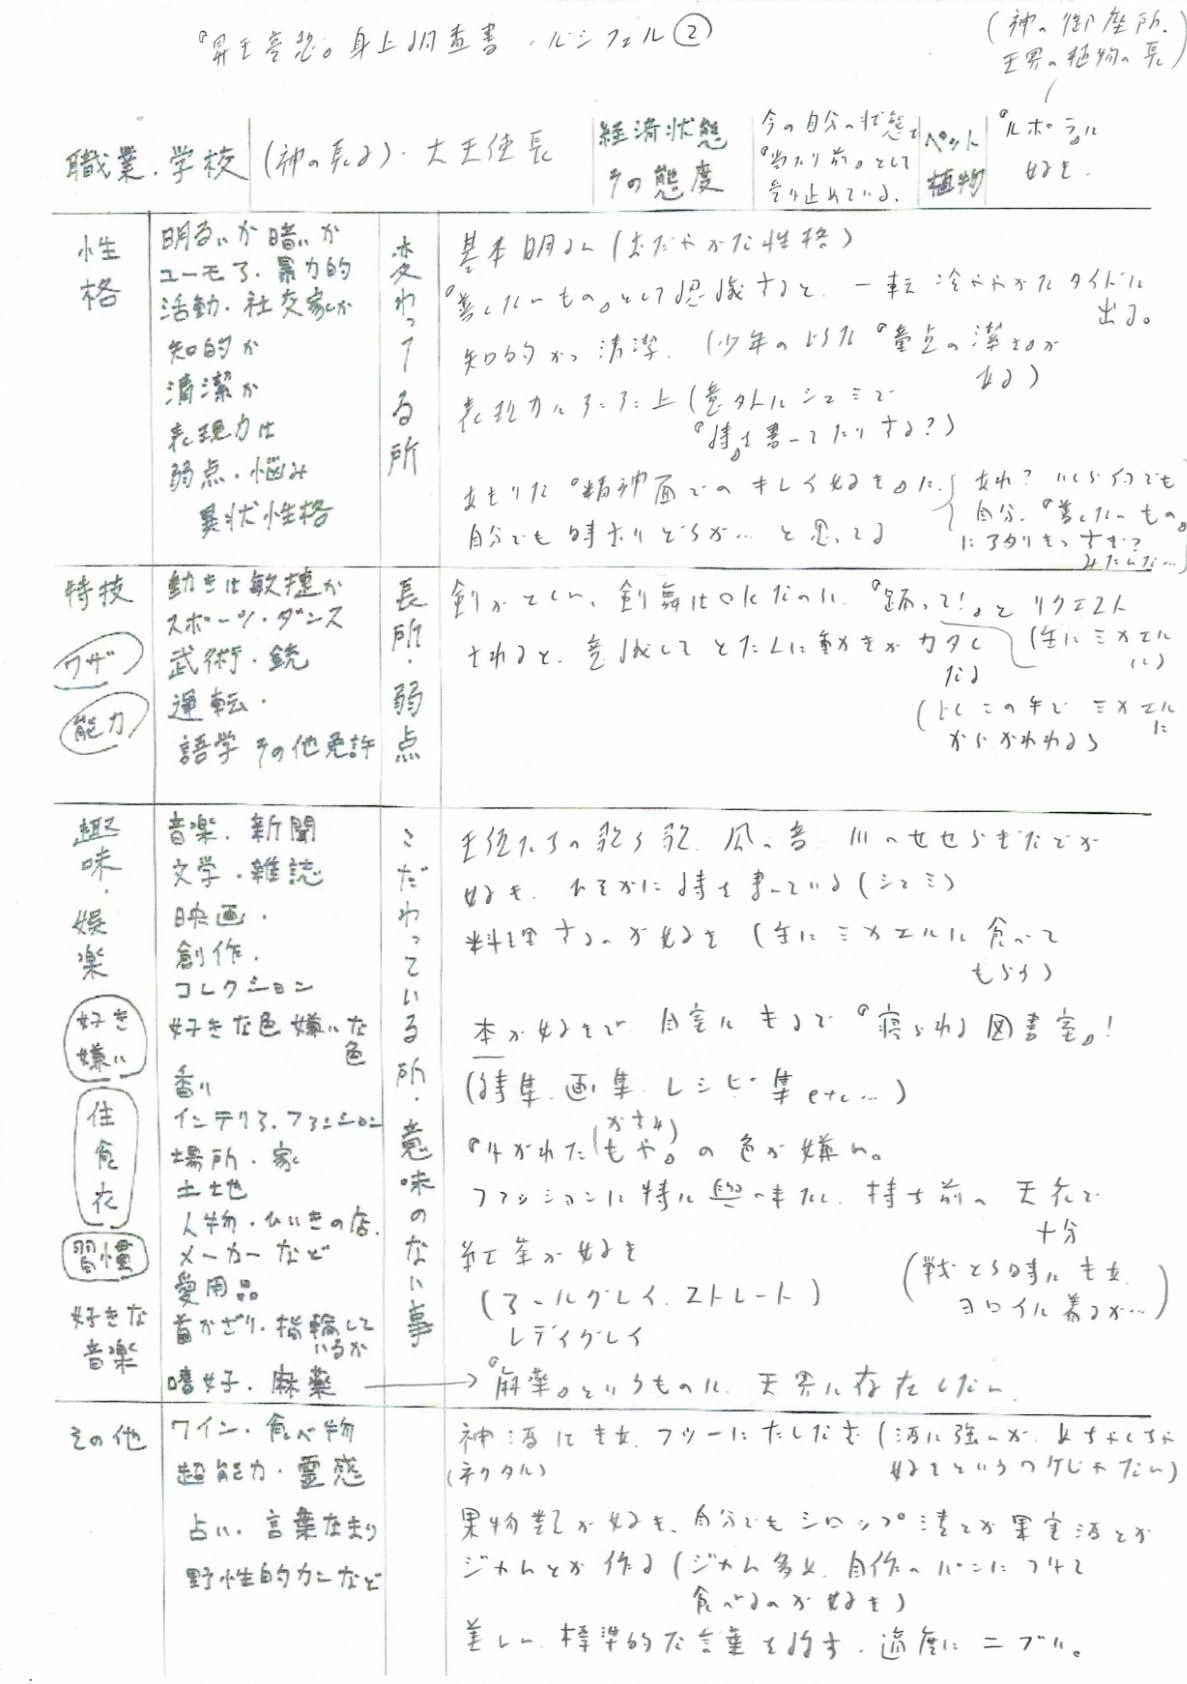 身上調査書・ルシフェル②
(神の御座所、
天界の植物の長)
職業・学校
(神の長子)・大天使長
経済状態
その態度
今の自分の状態を
『当たり前』として
受け止めている。
ペット
植物
『ルポラ』ル
好き.
性格
明るいか暗いか
ユーモア・暴力的
活動・社交家か
知的か
清潔か
表現力は
弱点・悩み
異状性格
変わってる所
基本明るい(おだやかな性格)
『美しくないもの』として認識すると、一転冷ややかなタイドに
出る。
知的かつ清潔.(少年のような『童貞の潔さ』が
ある)
表現力はそこそこ上(意外にシュミで
『詩』を書いてたりする?)
あまりな『精神面でのキレイ好き』に、
自分でも時おりどうか…と思ってる
あれ?いくらイヤでも
自分、『美しくないもの』
にアタリきつすぎ?
みたいな…
特技
ワザ
能力
動きは敏捷か
スポーツ・ダンス
武術・銃
運転・
語学 その他免許
長所・弱点
剣がとくい、剣舞はOKなのに、『踊って!』とリクエスト
されると、意識してとたんに動きがカタく
なる
(主にミカエル
に)
(よくこの件でミカエルに
からかわれる)
趣味・娯楽
好き嫌い
住食衣
習慣
好きな
音楽
音楽.新聞
文学・雑誌
映画・
創作・
コレクション
好きな色 嫌いな
色
香り
インテリア.ファッション
場所・家
土地
人物・ひいきの店.
メーカーなど
愛用品
首かざり・指輪して
いるか
嗜好・麻薬
こだわっている所・意味のない事
天使たちの歌う歌、風の音、川のせせらぎなどが
好き、ひそかに詩を書いている(シュミ)
料理するのが好き(主にミカエルに食べて
もらう)
本が好きで、自室はまるで『寝られる図書室』!
(詩集、画集、レシピ集etc…)
(かすれ)
『よごれた(もや)』の色が嫌い。
ファッションに特に興味なし、持ち前の天衣で
十分
(戦とう時にも.
ヨロイは着るが…)
紅茶が好き
(アールグレイ、ストレート)
レディグレイ
『麻薬』というものは、天界に存在しない
その他
ワイン・食べ物
超能力・霊感
占い・言葉なまり
野性的カンなど
神酒は フツーにたしなむ(酒に強いが、めちゃくちゃ
好きというワケじゃない)
(ネクタル)
果物類が好き、自分でもシロップ漬とか果実酒とか
ジャムとか作る(ジャム多め、自作のパンにつけて
食べるのが好き)
美しい、標準的な言葉を話す、適度にニブい。